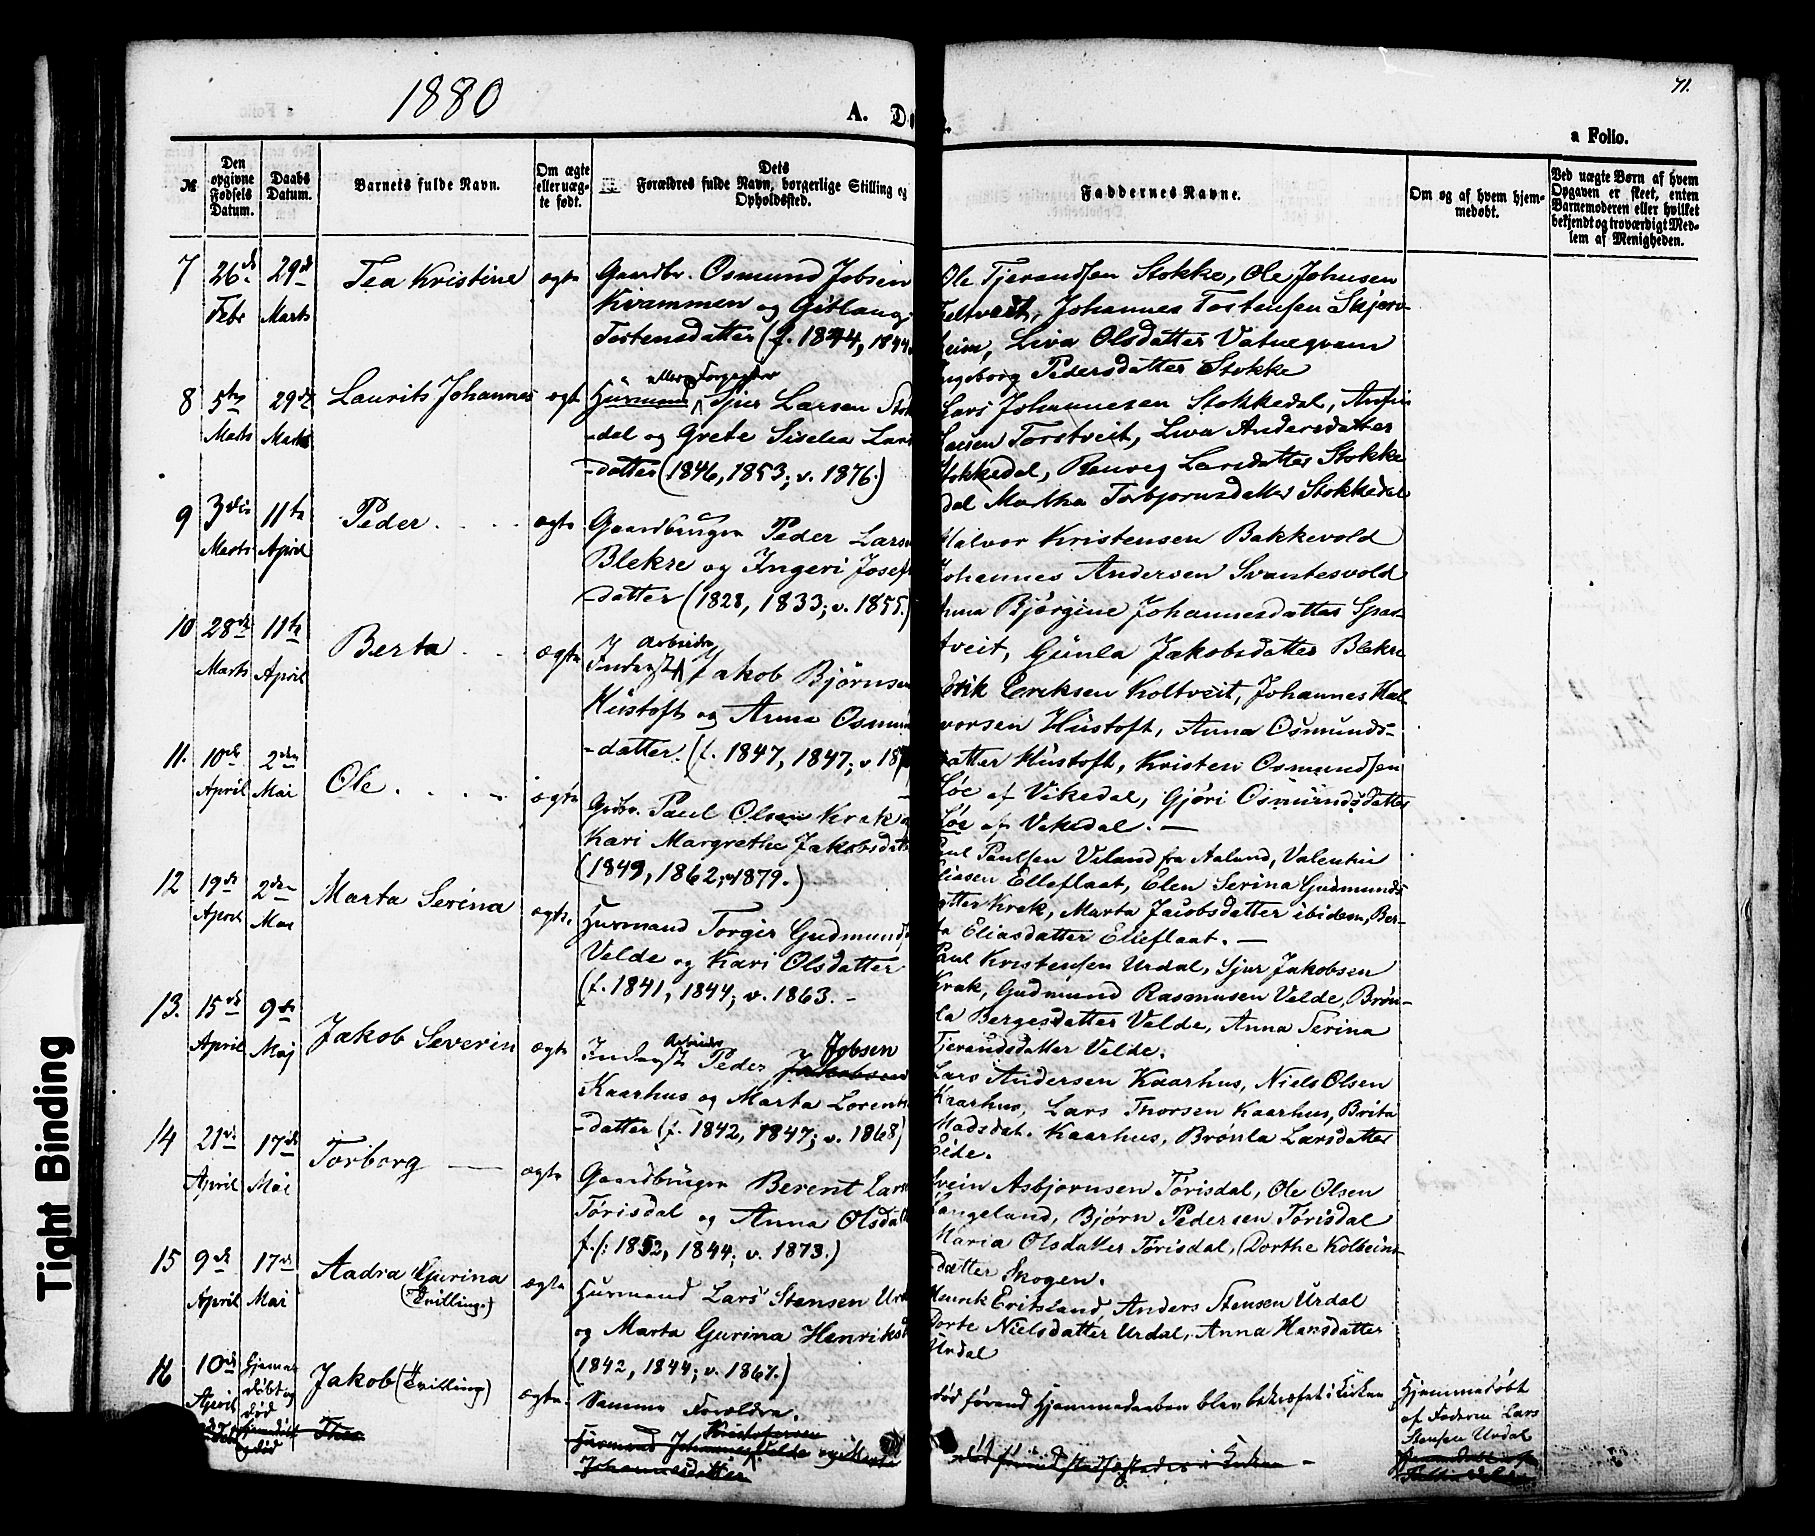 1880
A. D
71.
a Folio.
№
Den opgivne Fødsels Datum.
Daabs Datum.
Barnets fulde Navn.
Om ægte eller uægte født.
Dets Forældres fulde Navn, borgerlige Stilling og Opholdssted.
Faddernes Navne.
Om og af hvem hjemmedøbt.
Ved uægte Børn af hvem Opgaven er skeet, enten Barnemoderen eller hvilket bekjendt og troværdigt Medlem af Menigheden.
7 26de Febr 29de Marts Tea Kristine ægte
Gaardbr. Osmund Jobsen
Kvammen og Gitlaug
Tostensdatter (f. 1844, 1844
Ole Tjerandsen Stokke, Ole Johnsen
Johannes Tostensen Skjær-
heim, Liva Olsdatter Vatneqvam
Ingeborg Pedersdatter Stokke
8 5te Marts 29de Marts Laurits Johannes ægte
Husmand Sjur Larsen Stok
-dal og Grete Siselia Lars
-datter (1846, 1853; v. 1876.)
Lars Johannesen Stokkedal, Anfin
Larsen Torstveit, Liva Andersdatter
Stokkedal, Ranveg Larsdatter Stokke
dal Martha Torbjørnsdatter Stokkedal
9 3die Marts 11te April Peder ægte
Gaardbruger Peder Larsen
Blekre og Ingeri Josefs
-datter (1828, 1833; v. 1855.)
Halvor Kristensen Bakkevold
Johannes Andersen Svantesvold
Anna Bjørgine Johannesdatter
tveit, Gunla Jakobsdatter Blekre
10 28de Marts 11te April Berta ægte
Arbeider
Inderst Jakob Bjørnsen
Hustoft og Anna Osmunds
-datter. (f. 1847, 1847; v. 18
Erik Eriksen Koltveit, Johannes Hal-
vorsen Hustoft, Anna Osmunds-
datter Hustoft, Kristen Osmundsen
Løe af Vikedal, Gjøri Osmundsdatter
Løe af Vikedal. —
11. 10de April 2den Mai Ole ægte
Grdbr. Paul Olsen Krak og
Kari Margrethe Jakobsdatt
(1849, 1862; v. 1879.)
Paul Paulsen Veland fra Aaland, Valentin
Eliasen Elleflaat, Elen Serina Gudmunds
datter Krak, Marta Jacobsdatter ibidem, Ber-
ta Eliasdatter Elleflaat. —
12 19de April 2den Mai Marta Serina ægte
Husmand Torgir Gudmunds
Velde og Kari Olsdatter
(f. 1841, 1844; v. 1863. -
Paul Kristensen Urdal, Sjur Jakobsen
Krak, Gudmund Rasmusen Velde, Brøn-
la Bergesdatter Velde, Anna Serina
Tjerandsdatter Velde.
13. 15de April 9de Maj Jakob Severin ægte
Arbeider Jobsen
Inderst Peder Jakobsen
Kaarhus og Marta Lorents
-datter (f. 1842, 1847; v. 1868)
Lars Andersen Kaarhus, Niels Olsen
Kaarhus, Lars Thorsen Kaarhus, Brita
Madsdat. Kaarhus, Brønla Larsdatter
Eide.
14 21de April 17de Mai Torborg ægte
Gaardbruger Berent Lars
Torisdal og Anna Olsdat
f. (: 1852, 1844; v. 1873.)
Svein Asbjørnsen Torisdal, Ole Olsen
Langeland, Bjørn Pedersen Torisdal
Maria Olsdatter Torisdal, Dorthe Kolbeins-
datter Skogen.
15 9de April 17de Mai Aadra Gurina (Tvilling.) ægte
Husmand Lars Stensen Urd
og Marta Gurina Henriksd
(1842, 1844; v. 1867.)
Henrik Eritsland, Anders Stensen Urdal
Dorte Nielsdatter Urdal, Anna Hansdatter
Urdal
16 10de April Hjemmedøbt og død Jakob (Tvilling) ægte
Samme Forældre.
død førend Hjemmedaaben blev bekræftet i Kirken
Hjemmedøbt
af Faderen Lars
Stensen Urdal
Kristofersen
Husmand Johannes Velde og Marta
Johannesdatter
Tight Binding